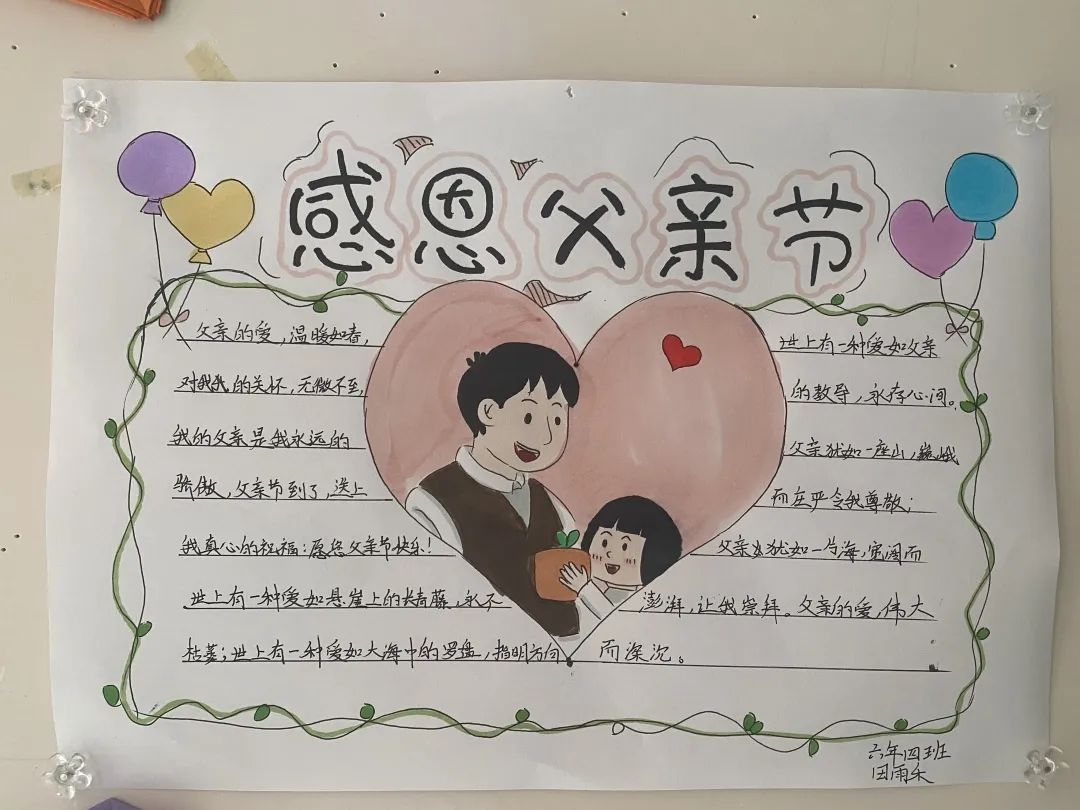 感恩父亲节
父亲的爱，温暖如春，
对我的关怀，无微不至，
我的父亲是我永远的
骄傲，父亲节到了，送上
我真心的祝福：愿您父亲节快乐！
世上有一种爱如悬崖上的长青藤，永不
枯萎；世上有一种爱如大海中的罗盘，指明方向
世上有一种爱如父亲
的教导，永存心间。
父亲犹如一座山，巍峨
而庄严令我尊敬；
父亲犹如一片海，宽阔而
澎湃，让我崇拜。父亲的爱，伟大
而深沉。
六年四班
田雨禾